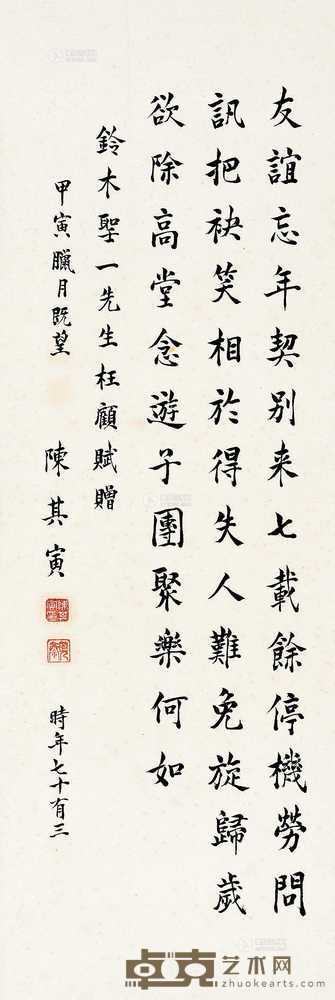 友誼忘年契別来七載餘停機勞問
訊把袂笑相於得失人難免旋歸歲
欲除高堂念遊子團聚樂何如
鈴木聖一先生枉顧賦贈
甲寅臘月既望
陳其寅
時年七十有三
卓克艺术网
www.zhuokearts.com